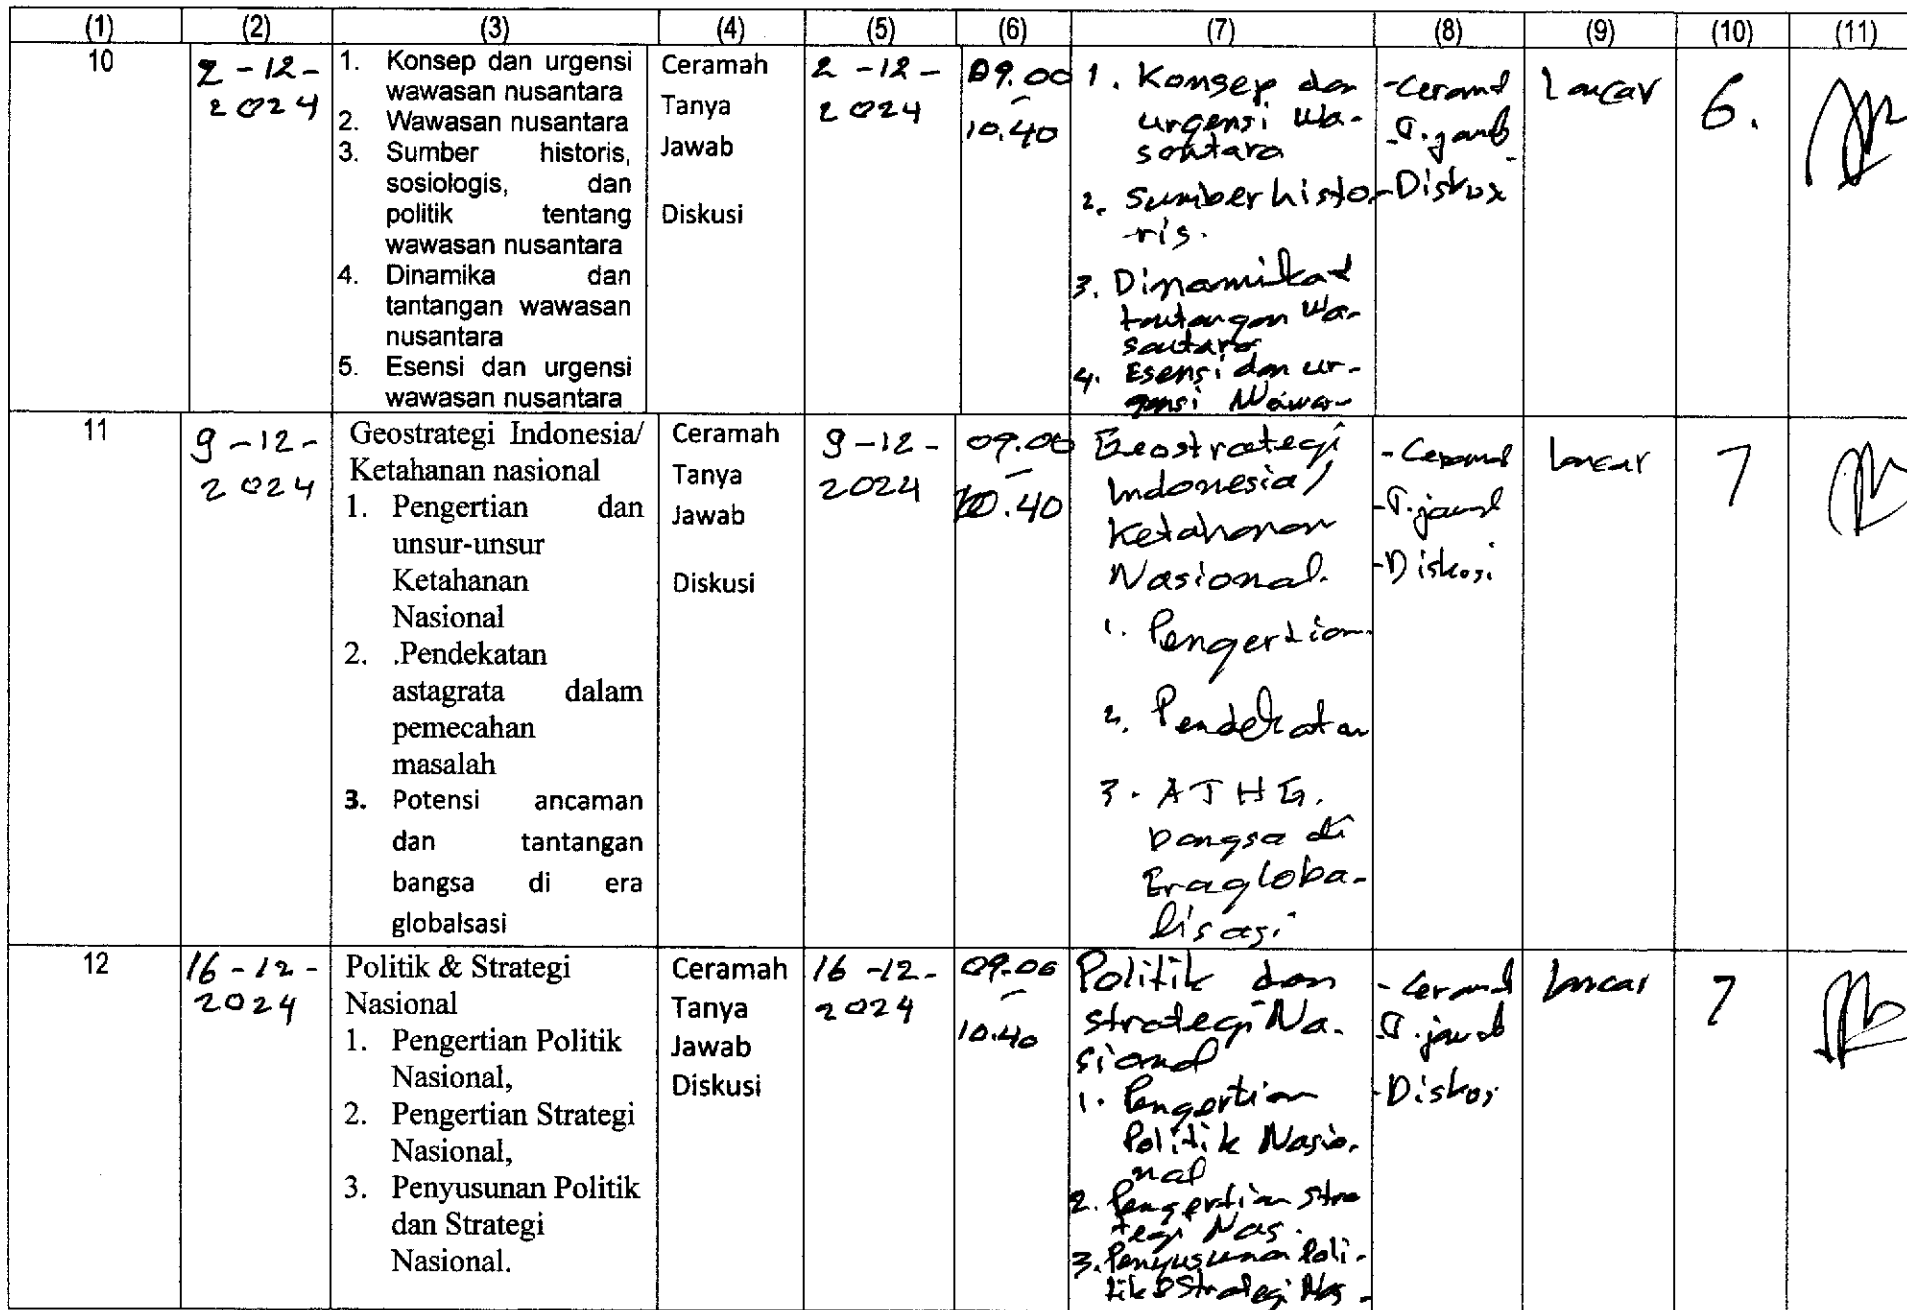 (1) (2) (3) (4) (5) (6) (7) (8) (9) (10) (11)
10
2-12-
2024
1. Konsep dan urgensi
wawasan nusantara
2. Wawasan nusantara
3. Sumber historis,
sosiologis, dan
politik tentang
wawasan nusantara
4. Dinamika dan
tantangan wawasan
nusantara
5. Esensi dan urgensi
wawasan nusantara
Ceramah
Tanya
Jawab
Diskusi
2-12-
2024
09.00
-
10.40
1. Konsep dan
urgensi Wa-
santara
2. Sumber histo-
-ris.
3. Dinamika &
tantangan Wa-
santara
4. Esensi dan ur-
gensi Wawa-
-Ceramah
-T.jawab
-Diskusi
Lancar
6.
11
9-12-
2024
Geostrategi Indonesia/
Ketahanan nasional
1. Pengertian dan
unsur-unsur
Ketahanan
Nasional
2. .Pendekatan
astagrata dalam
pemecahan
masalah
3. Potensi ancaman
dan tantangan
bangsa di era
globalsasi
Ceramah
Tanya
Jawab
Diskusi
9-12-
2024
09.00
-
10.40
Geostrategi
Indonesia/
Ketahanan
Nasional.
1. Pengertian
2. Pendekatan
3. ATHG.
bangsa di
Era globa-
lisasi
-Ceramah
-T.jawab
-Diskusi
Lancar
7
12
16-12-
2024
Politik & Strategi
Nasional
1. Pengertian Politik
Nasional,
2. Pengertian Strategi
Nasional,
3. Penyusunan Politik
dan Strategi
Nasional.
Ceramah
Tanya
Jawab
Diskusi
16-12-
2024
09.00
-
10.40
Politik dan
strategi Na-
sional
1. Pengertian
Politik Nasio-
nal
2. Pengertian Stra
tegi Nas.
3. Penyusunan Poli-
tik & Strategi Nas-
-Ceramah
-T.jawab
-Diskusi
Lancar
7